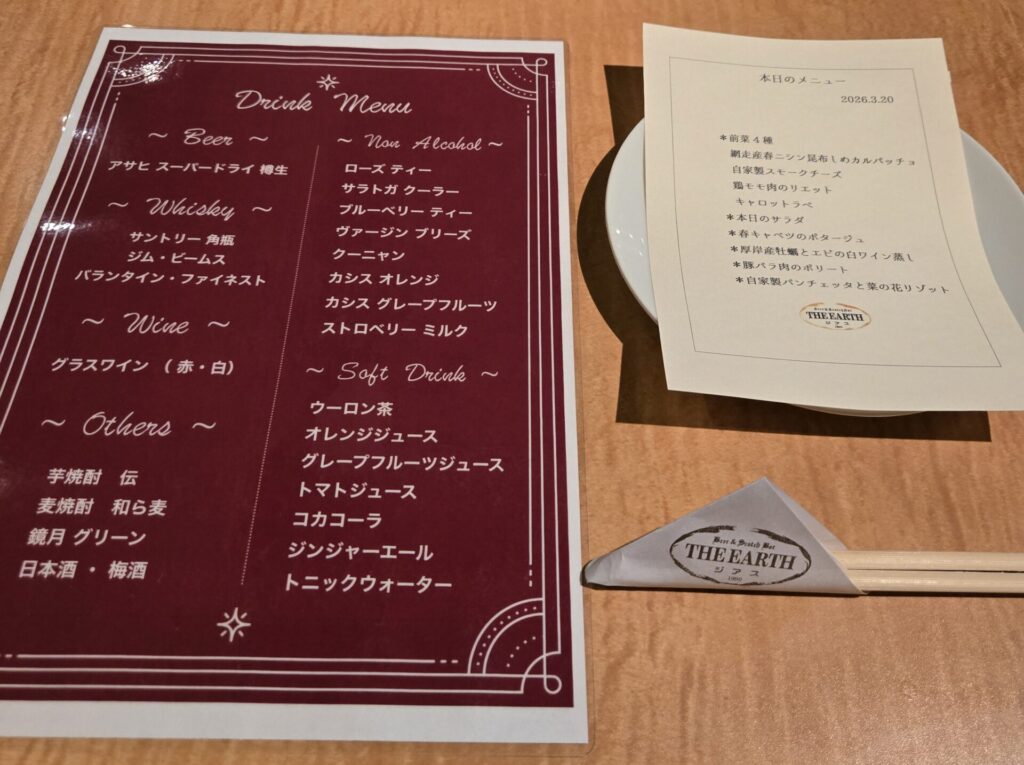 Drink Menu
～ Beer ～
アサヒ スーパードライ 樽生
～ Whisky ～
サントリー 角瓶
ジム・ビームス
バランタイン・ファイネスト
～ Wine ～
グラスワイン （赤・白）
～ Others ～
芋焼酎 伝
麦焼酎 和ら麦
鏡月 グリーン
日本酒 ・ 梅酒
～ Non Alcohol ～
ローズ ティー
サラトガ クーラー
ブルーベリー ティー
ヴァージン ブリーズ
クーニャン
カシス オレンジ
カシス グレープフルーツ
ストロベリー ミルク
～ Soft Drink ～
ウーロン茶
オレンジジュース
グレープフルーツジュース
トマトジュース
コカコーラ
ジンジャーエール
トニックウォーター
本日のメニュー
2026.3.20
＊前菜４種
網走産春ニシン昆布しめカルパッチョ
自家製スモークチーズ
鶏モモ肉のリエット
キャロットラペ
＊本日のサラダ
＊春キャベツのポタージュ
＊厚岸産牡蠣とエビの白ワイン蒸し
＊豚バラ肉のポリート
＊自家製パンチェッタと菜の花リゾット
Beer & Scotch Bar
THE EARTH
ジアス
Beer & Scotch Bar
THE EARTH
ジアス
1990